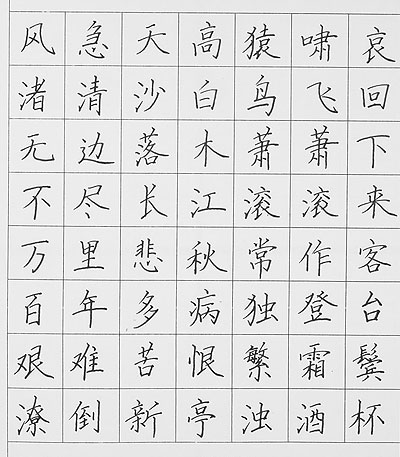 风急天高猿啸哀
渚清沙白鸟飞回
无边落木萧萧下
不尽长江滚滚来
万里悲秋常作客
百年多病独登台
艰难苦恨繁霜鬓
潦倒新亭浊酒杯